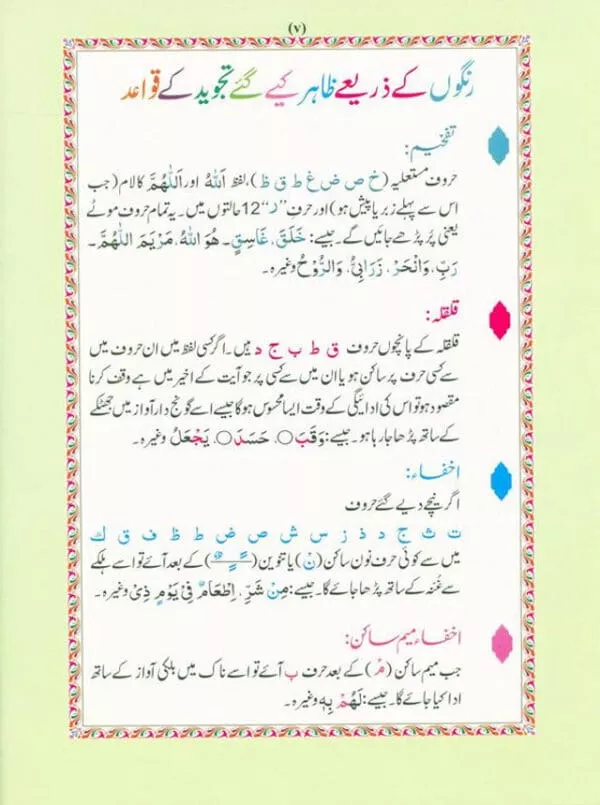 (۷)
رنگوں کے ذریعے ظاہر کیے گئے تجوید کے قواعد
تفخیم:
حروف مستعلیہ (خ ص ض غ ط ق ظ)، لفظ اَللّٰهُ اور اَللّٰهُمَّ کا لام (جب
اس سے پہلے زبر یا پیش ہو) اور حرف ”ر“ 12 حالتوں میں۔ یہ تمام حروف موٹے
یعنی پُر پڑھے جائیں گے۔ جیسے: خَلَقَ، غَاسِقٍ۔ هُوَ اللّٰهُ، مَرْيَمَ اللّٰهُمَّ۔
رَبِّ، وَانْحَرْ، زَرَابِيُّ، وَالرُّوْحُ وغیرہ۔
قلقلہ:
قلقلہ کے پانچوں حروف ق ط ب ج د ہیں۔ اگر کسی لفظ میں ان حروف میں
سے کسی حرف پر سکون ہو یا ان میں سے کسی پر جو آیت کے اخیر میں ہے وقف کرنا
مقصود ہو تو اس کی ادائیگی کے وقت ایسا محسوس ہوگا جیسے اسے گونج دار آواز میں جھٹکے
کے ساتھ پڑھا جا رہا ہو۔ جیسے: وَقَبَ○، حَسَدَ○، يَجْعَلُ وغیرہ۔
اخفاء:
اگر نیچے دیے گئے حروف
ت ث ج د ذ ز س ش ص ض ط ظ ف ق ك
میں سے کوئی حرف نون ساکن (نْ) یا تنوین (ـًـٍـٌ) کے بعد آئے تو اسے ہلکے
سے غُنہ کے ساتھ پڑھا جائے گا۔ جیسے: مِنْ شَرِّ، اِطْعَامٌ فِيْ يَوْمٍ ذِيْ وغیرہ۔
اخفاء میم ساکن:
جب میم ساکن (مْ) کے بعد حرف ب آئے تو اسے ناک میں ہلکی آواز کے ساتھ
ادا کیا جائے گا۔ جیسے: لَهُمْ بِهٖ وغیرہ۔